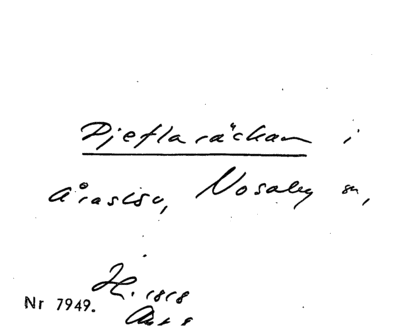 Djeflaräckan i
Åraslöv, Nosaby sn,
H. 1818
Nr 7949.